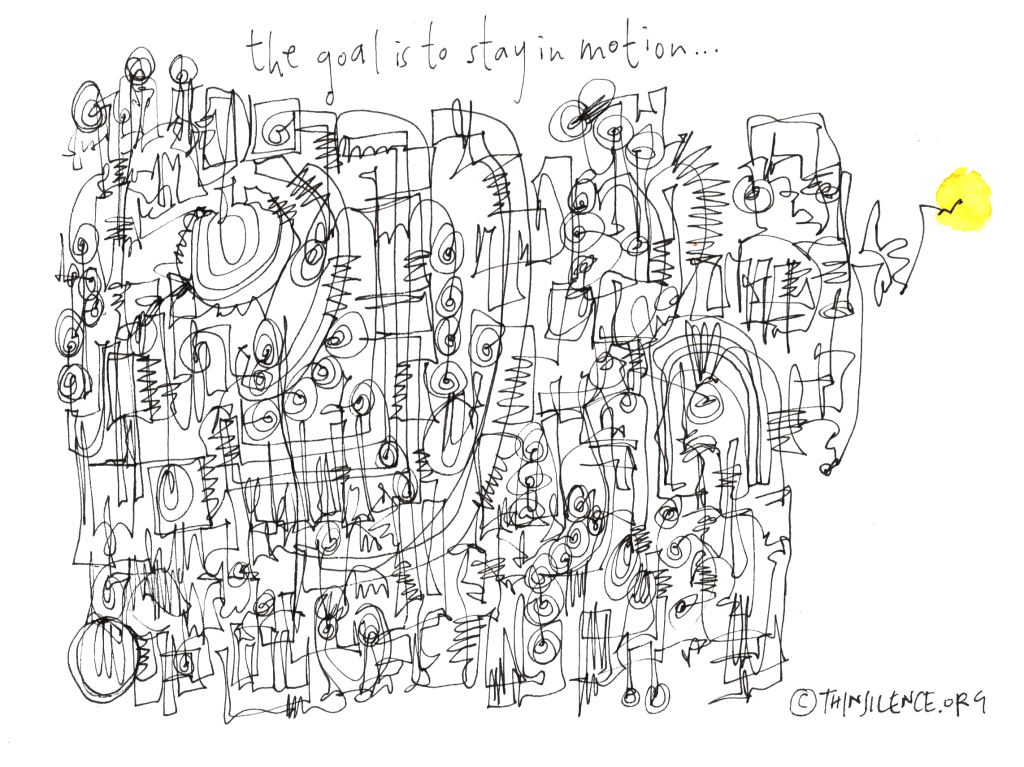 the goal is to stay in motion...
© THINSILENCE.ORG